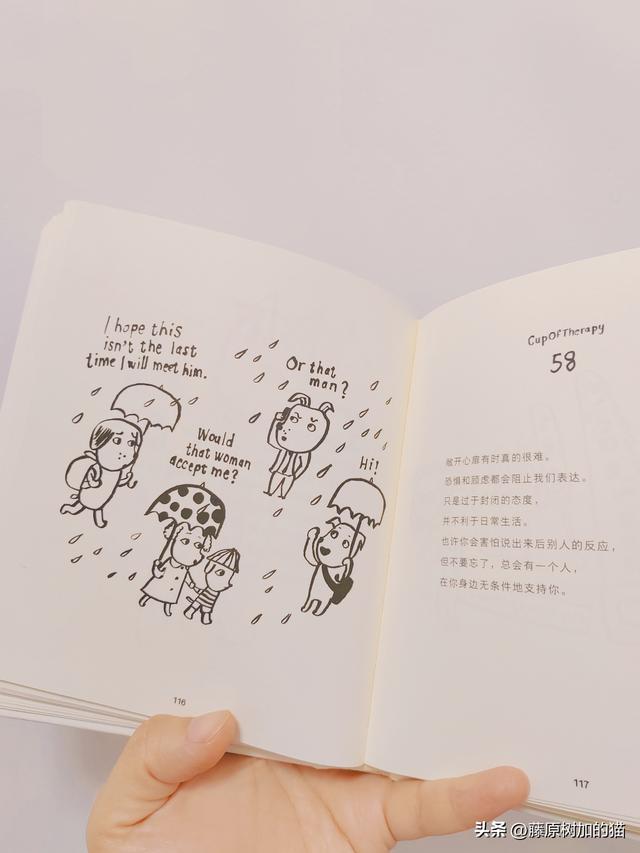 I hope this
isn't the last
time I will meet him.
Or that
man?
Would
that woman
accept me?
Hi!
116
CupOfTherapy
58
敞开心扉有时真的很难。
恐惧和顾虑都会阻止我们表达。
只是过于封闭的态度，
并不利于日常生活。
也许你会害怕说出来后别人的反应，
但不要忘了，总会有一个人，
在你身边无条件地支持你。
117
头条 @藤原树加的猫